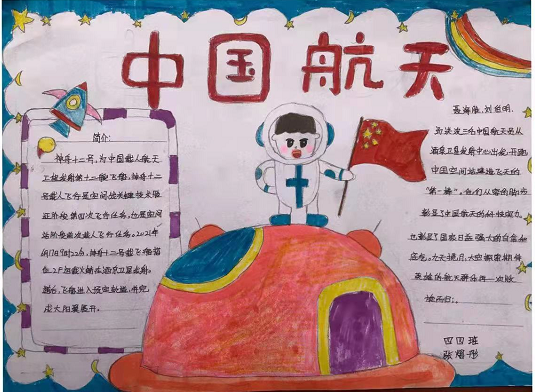 中国航天
简介:
神舟十二号,为中国载人航天
工程发射的第十二艘飞船,神舟十二
号载人飞行是空间站关键技术验
证阶段第四次飞行任务,也是空间
站阶段首次载人飞行任务。2021年
6月17日9时22分,神舟十二号载人飞船搭
在酒泉卫星发射。
飞船进入预定轨道,
太阳翼展开。
聂海胜、刘伯明、
三名中国航天员从
酒泉卫星发射中心出发,开启
中国空间站建造飞天的
"第一棒"。他们从容的脚步
彰显了中国航天的
也彰显了国家日益强大的自信和
底色。九天揽月,
英雄的航天
四四班
张熠彤